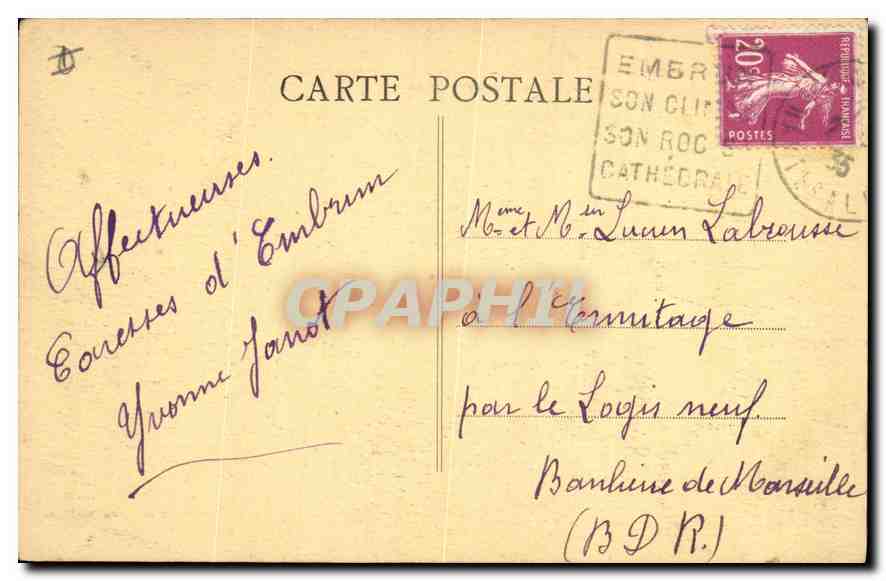 CARTE POSTALE
EMBR
SON CLI
SON ROC
CATHÉDRALE
20c
POSTES
RÉPUBLIQUE FRANÇAISE
Affectueuses
Caresses d'Embrun
Yvonne Janot
Mme et Mr Lucien Labrousse
à l'Ermitage
par le Logis neuf.
Banlieue de Marseille
(B D R.)
CPAPHIL